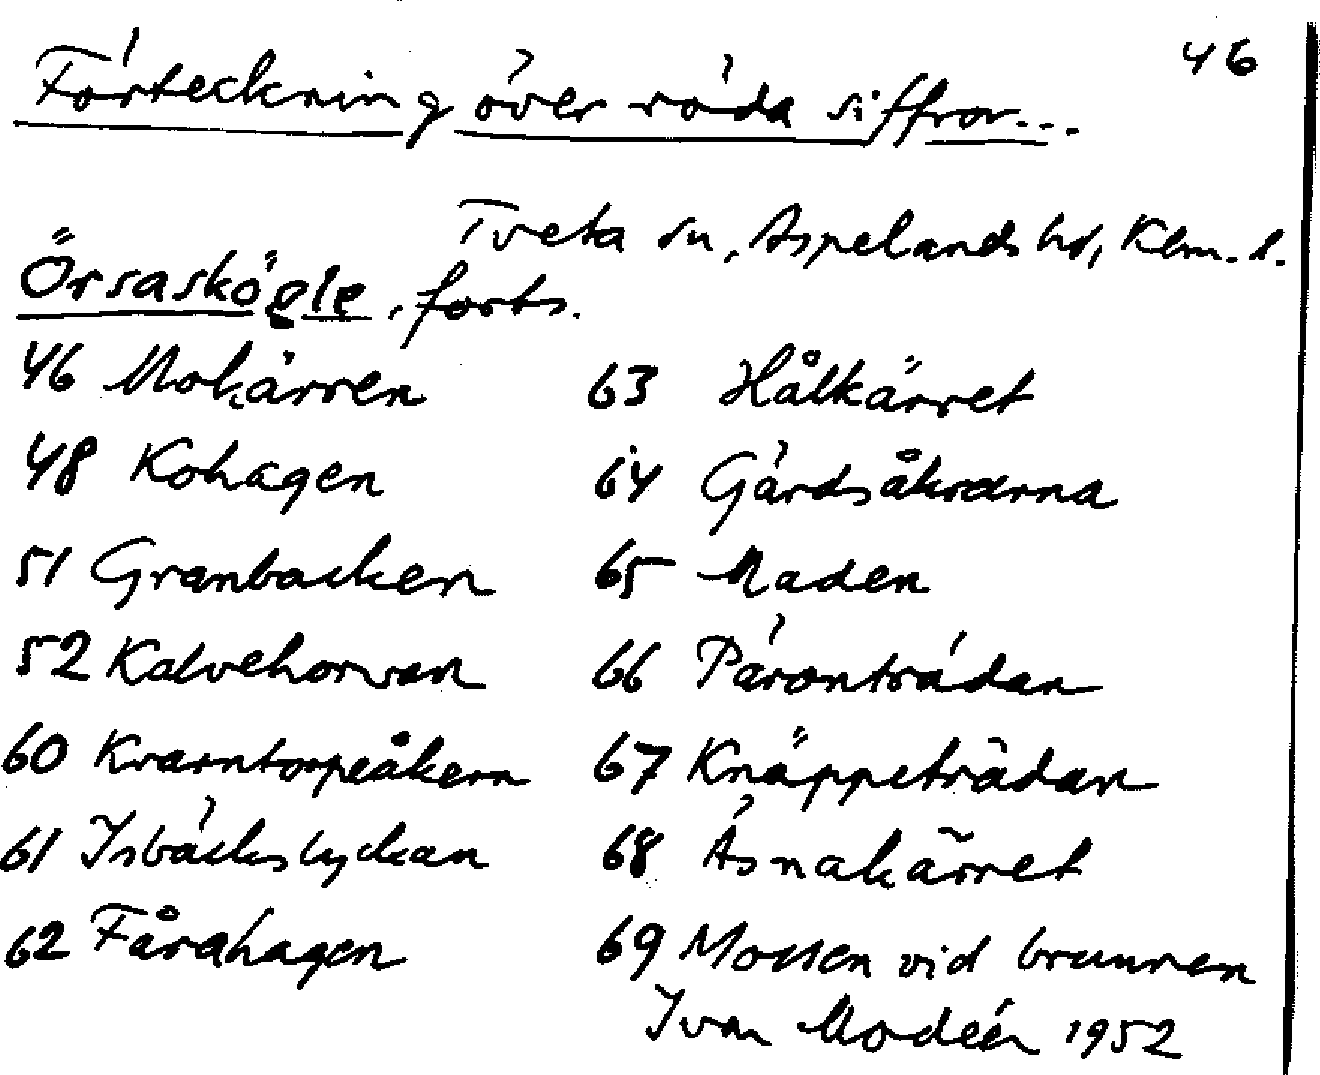 46
Förteckning över röda siffror...
Tveta sn, Aspelands hd, Klm. l.
Örsaskögle, forts.
46 Mokärren
48 Kohagen
51 Granbacken
52 Kalvehorvan
60 Kvarntorpeåkern
61 Isbäckslyckan
62 Fårahagen
63 Hålkärret
64 Gärdsåkrarna
65 Maden
66 Päronträdan
67 Knäppeträdan
68 Åsnakärret
69 Mossen vid brunnen
Ivar Modéer 1952